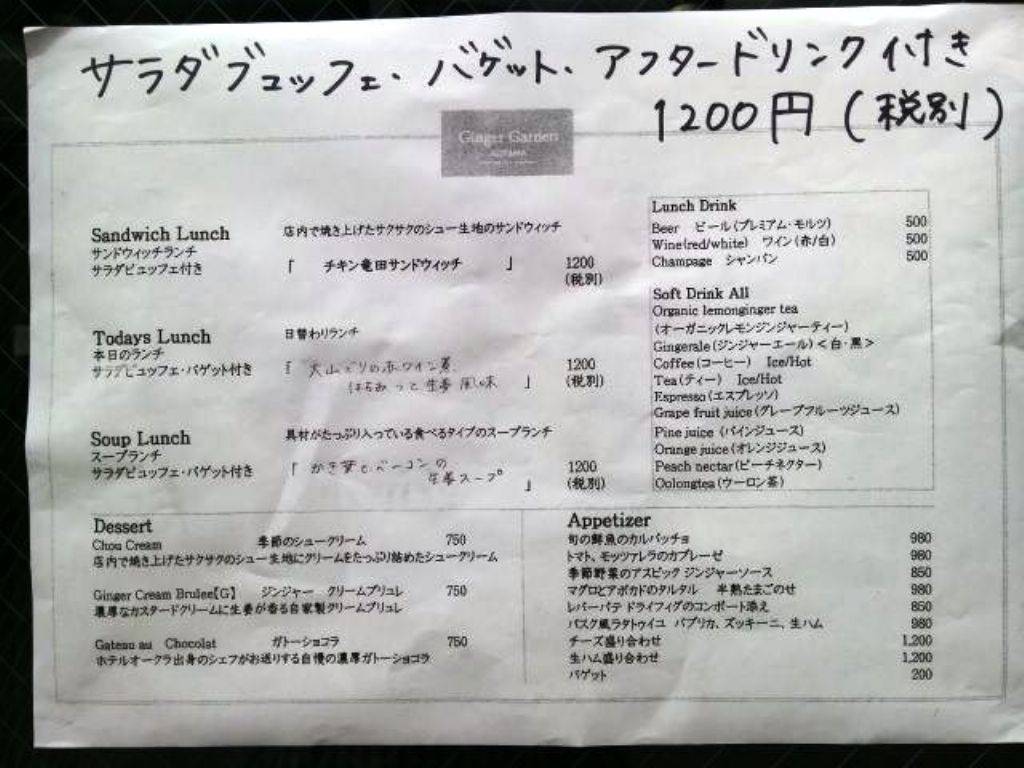 サラダブュッフェ・バゲット・アフタードリンク付き
1200円(税別)
Ginger Garden
AOYAMA
Sandwich Lunch
店内で焼き上げたサクサクのシュー生地のサンドウィッチ
サンドウィッチランチ
サラダビュッフェ付き
「 チキン竜田サンドウィッチ 」 1200
(税別)
Todays Lunch
日替わりランチ
本日のランチ
サラダビュッフェ・バゲット付き
「大山どりの赤ワイン煮
はちみつと生姜風味 」 1200
(税別)
Soup Lunch
具材がたっぷり入っている食べるタイプのスープランチ
スープランチ
サラダビュッフェ・バゲット付き
「 かき菜とベーコンの
生姜スープ 」 1200
(税別)
Lunch Drink
Beer ビール(プレミアム・モルツ) 500
Wine(red/white) ワイン(赤/白) 500
Champage シャンパン 500
Soft Drink All
Organic lemonginger tea
(オーガニックレモンジンジャーティー)
Gingerale(ジンジャーエール)<白・黒>
Coffee(コーヒー) Ice/Hot
Tea(ティー) Ice/Hot
Espresso(エスプレッソ)
Grape fruit juice(グレープフルーツジュース)
Pine juice (パインジュース)
Orange juice(オレンジジュース)
Peach nectar(ピーチネクター)
Oolongtea(ウーロン茶)
Dessert
Chou Cream 季節のシュークリーム 750
店内で焼き上げたサクサクのシュー生地にクリームをたっぷり詰めたシュークリーム
Ginger Cream Brulee【G】 ジンジャー クリームブリュレ 750
濃厚なカスタードクリームに生姜が香る自家製クリームブリュレ
Gateau au Chocolat ガトーショコラ 750
ホテルオークラ出身のシェフがお送りする自慢の濃厚ガトーショコラ
Appetizer
旬の鮮魚のカルパッチョ 980
トマト、モッツァレラのカプレーゼ 980
季節野菜のアスピック ジンジャーソース 850
マグロとアボカドのタルタル 半熟たまごのせ 980
レバーパテ ドライフィグのコンポート添え 850
バスク風ラタトゥイユ パプリカ、ズッキーニ、生ハム 980
チーズ盛り合わせ 1,200
生ハム盛り合わせ 1,200
バゲット 200